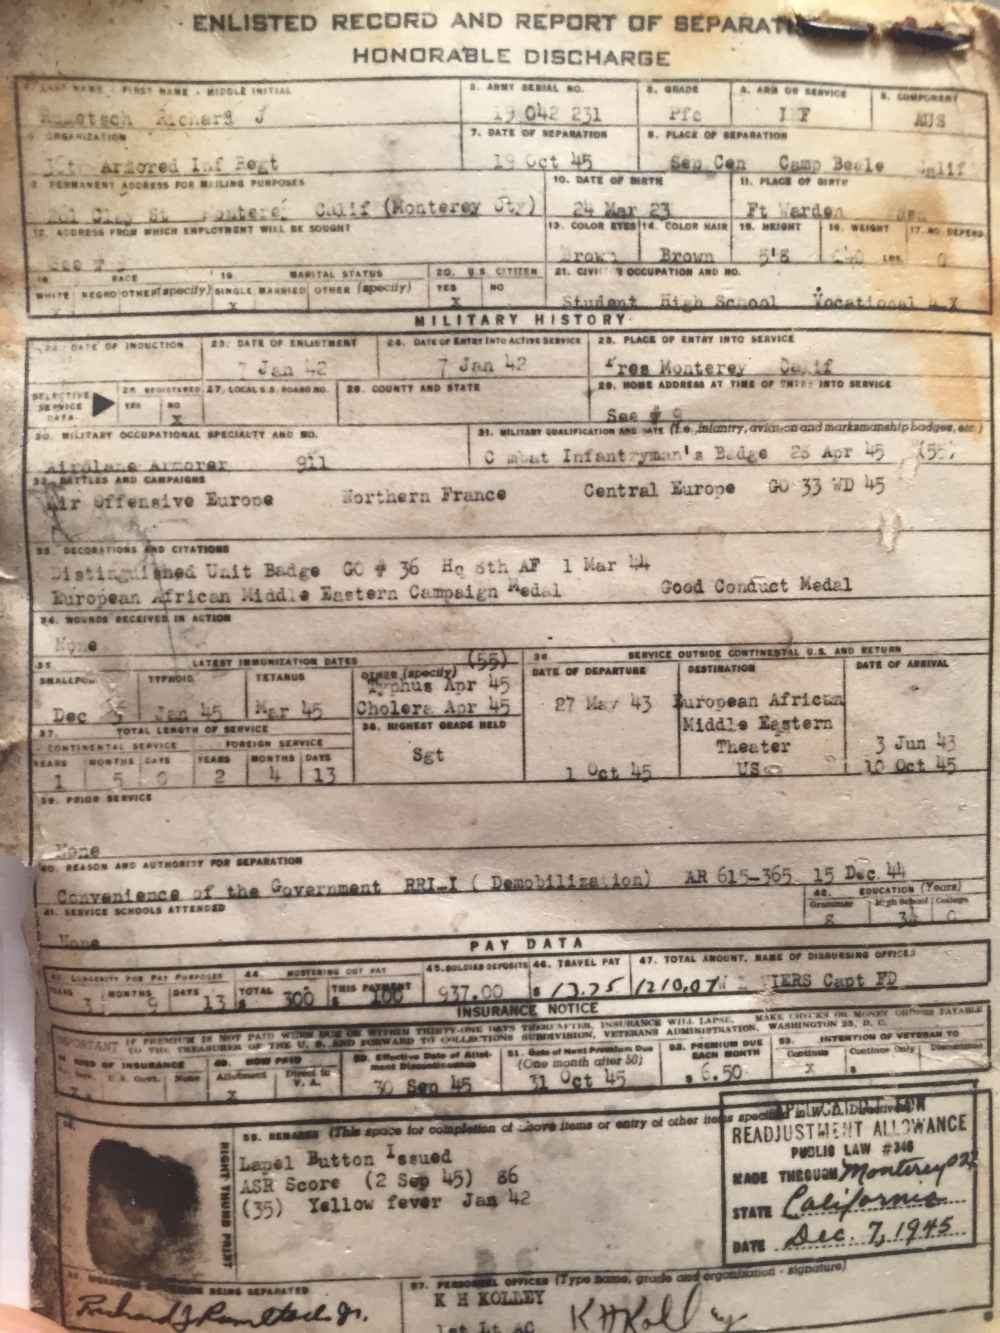 ENLISTED RECORD AND REPORT OF
HONORABLE DISCHARGE
LAST NAME - FIRST NAME - MIDDLE INITIAL 2. ARMY SERIAL NO. 3. GRADE 4. ARM OR SERVICE 5. COMPONENT
Richard J 19 042 231 Pfc INF AUS
ORGANIZATION 7. DATE OF SEPARATION 8. PLACE OF SEPARATION
Armored Inf Regt 19 Oct 45 Sep Cen Camp Beale Calif
9. PERMANENT ADDRESS FOR MAILING PURPOSES 10. DATE OF BIRTH 11. PLACE OF BIRTH
Clay St Monterey Calif (Monterey Cty) 24 Mar 23 Ft Warden
12. ADDRESS FROM WHICH EMPLOYMENT WILL BE SOUGHT 13. COLOR EYES 14. COLOR HAIR 15. HEIGHT 16. WEIGHT 17. NO. DEPEND.
See Brown Brown 5'8 LBS. 0
18. RACE 19. MARITAL STATUS 20. U.S. CITIZEN 21. CIVILIAN OCCUPATION AND NO.
WHITE NEGRO OTHER (specify) SINGLE MARRIED OTHER (specify) YES NO
X X X Student High School Vocational 4 X
MILITARY HISTORY
22. DATE OF INDUCTION 23. DATE OF ENLISTMENT 24. DATE OF ENTRY INTO ACTIVE SERVICE 25. PLACE OF ENTRY INTO SERVICE
7 Jan 42 7 Jan 42 Pres Monterey Calif
SELECTIVE SERVICE DATA 26. REGISTERED YES NO 27. LOCAL S.S. BOARD NO. 28. COUNTY AND STATE 29. HOME ADDRESS AT TIME OF ENTRY INTO SERVICE
X See # 9
30. MILITARY OCCUPATIONAL SPECIALTY AND NO. 31. MILITARY QUALIFICATION AND DATE (i.e., infantry, aviation and marksmanship badges, etc.)
Airplane Armorer 911 Combat Infantryman's Badge 28 Apr 45 (55)
32. BATTLES AND CAMPAIGNS
Air Offensive Europe Northern France Central Europe GO 33 WD 45
33. DECORATIONS AND CITATIONS
Distinguished Unit Badge GO # 36 Hq 8th AF 1 Mar 44
European African Middle Eastern Campaign Medal Good Conduct Medal
34. WOUNDS RECEIVED IN ACTION
None
35. LATEST IMMUNIZATION DATES (55) 36. SERVICE OUTSIDE CONTINENTAL U.S. AND RETURN
SMALLPOX TYPHOID TETANUS OTHER (specify) DATE OF DEPARTURE DESTINATION DATE OF ARRIVAL
Typhus Apr 45
Dec Jan 45 Mar 45 Cholera Apr 45 27 May 43 European African
37. TOTAL LENGTH OF SERVICE 38. HIGHEST GRADE HELD Middle Eastern
CONTINENTAL SERVICE FOREIGN SERVICE Sgt Theater 3 Jun 43
YEARS MONTHS DAYS YEARS MONTHS DAYS
1 5 0 2 4 13 1 Oct 45 US 10 Oct 45
39. PRIOR SERVICE
None
40. REASON AND AUTHORITY FOR SEPARATION
Convenience of the Government RR1-1 (Demobilization) AR 615-365 15 Dec 44
41. SERVICE SCHOOLS ATTENDED 42. EDUCATION (Years)
Grammar High School College
None 8 0
PAY DATA
43. LONGEVITY FOR PAY PURPOSES 44. MUSTERING OUT PAY 45. SOLDIER DEPOSITS 46. TRAVEL PAY 47. TOTAL AMOUNT, NAME OF DISBURSING OFFICER
YEARS 3 MONTHS 9 DAYS 13 TOTAL $ 300 THIS PAYMENT $ 100 937.00 $ 13.75 1210.07 Capt FD
INSURANCE NOTICE
IMPORTANT IF PREMIUM IS NOT PAID WHEN DUE OR WITHIN THIRTY-ONE DAYS THEREAFTER, INSURANCE WILL LAPSE. MAKE CHECKS OR MONEY ORDERS PAYABLE
TO THE TREASURER OF THE U. S. AND FORWARD TO COLLECTIONS SUBDIVISION, VETERANS ADMINISTRATION, WASHINGTON 25, D. C.
48. KIND OF INSURANCE 49. HOW PAID 50. Effective Date of Allotment Discontinuance 51. Date of Next Premium Due (One month after 50) 52. PREMIUM DUE EACH MONTH 53. INTENTION OF VETERAN TO
U.S. Govt. None Allotment Direct to V. A. Continue Continue Only Discontinue
X X 30 Sep 45 31 Oct 45 $ 6.50 X $
55. REMARKS (This space for completion of above items or entry of other items specified in W. D. Directives)
RIGHT THUMB PRINT
Lapel Button Issued
ASR Score (2 Sep 45) 86
(35) Yellow fever Jan 42
READJUSTMENT ALLOWANCE
PUBLIC LAW #346
MADE THROUGH Monterey
STATE California
DATE Dec. 7, 1945
BEING SEPARATED 57. PERSONNEL OFFICER (Type name, grade and organization - signature)
K H KOLLEY K H Kolley
1st Lt AC